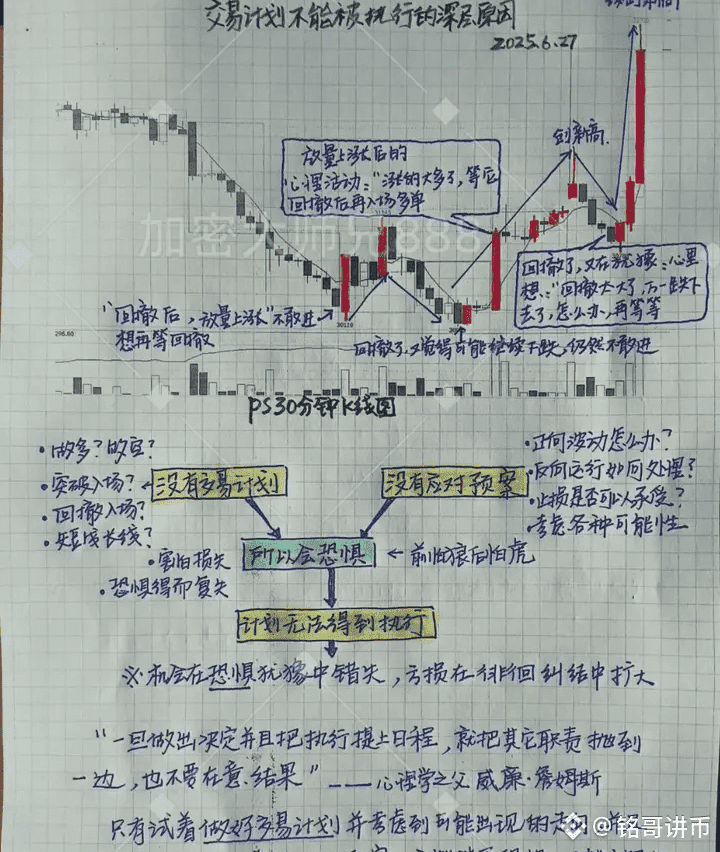 交易计划不能被执行的深层原因
2025.6.27
创新高
放量上涨后的
心理活动："涨的太多了，等后
回撤后再入场多单
加密大师兄888
回撤了，又在犹豫：心里
想："回撤太大了，万一跌下
去了，怎么办，再等等
"回撤后，放量上涨"不敢进
想再等回撤
30110
296.60
回撤了，又觉得可能继续下跌，仍然不敢进
PS30分钟K线图
·做多？做空？
·突破入场？
·回撤入场？
·短线长线？
没有交易计划
没有应对预案
·正向波动怎么办？
·反向运行如何处理？
·止损是否可以承受？
·考虑各种可能性
·害怕损失
·恐惧得而复失
所以会恐惧
前怕狼后怕虎
计划无法得到执行
※机会在恐惧犹豫中错失，亏损在徘徊纠结中扩大
"一旦做出决定并且把执行提上日程，就把其它职责抛到
一边，也不要在意结果"——心理学之父 威廉·詹姆斯
只有试着做好交易计划并考虑到可能出现的走向
铭哥讲币